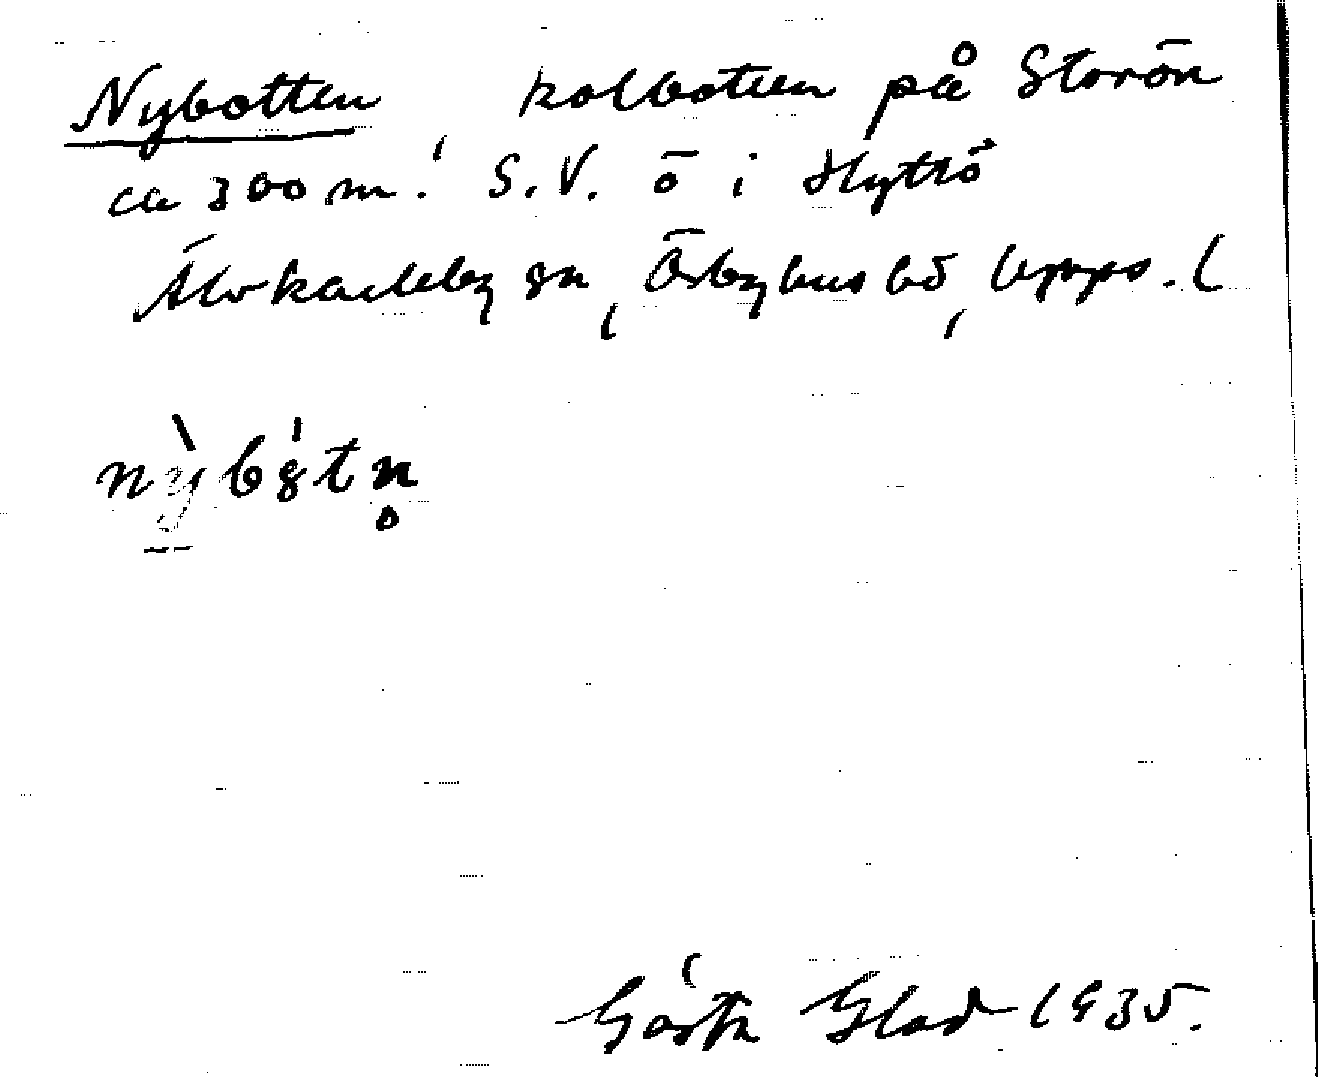 Nybotten kolbotten på Storön
ca 300 m. S.V. ö i Hyttö
Älvkarleby sn, Örbyhus hd, Upps. l
nỳbótn̥
Gösta Glad 1935.